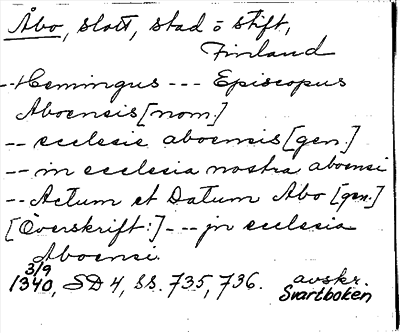 Åbo, slott, stad o stift,
Finland
-- Hemingus --- Episcopus
Aboensis [nom.]
-- ecclesie aboensis [gen.]
-- in ecclesia nostra aboensi
-- Actum et Datum Abo [gen.]
[Överskrift:] --- jn ecclesia
Aboensi.
3/9
1340, SD 4, ss. 735, 736. avskr.
Svartboken